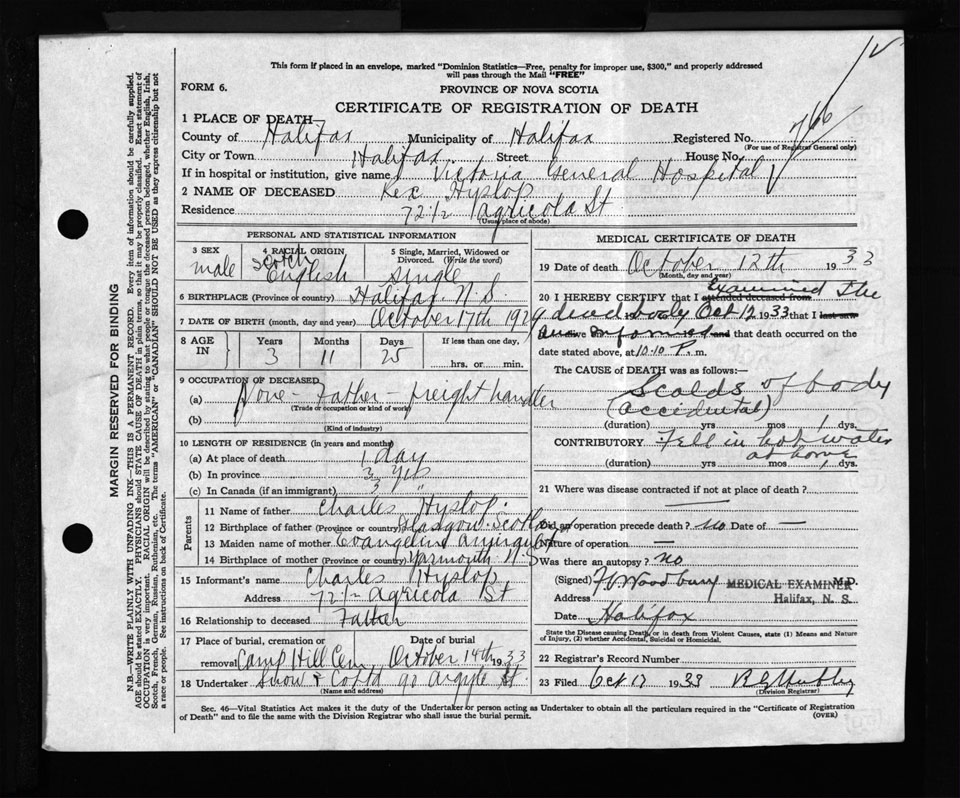 This form if placed in an envelope, marked "Dominion Statistics—Free, penalty for improper use, $300," and properly addressed
will pass through the Mail "FREE"
FORM 6.
PROVINCE OF NOVA SCOTIA
CERTIFICATE OF REGISTRATION OF DEATH
1 PLACE OF DEATH—
County of Halifax Municipality of Halifax Registered No.
(For use of Registrar General only)
City or Town Halifax Street House No.
If in hospital or institution, give name Victoria General Hospital
2 NAME OF DECEASED Rex Hyslop
Residence 72 1/2 Agricola St
(Usual place of abode)
PERSONAL AND STATISTICAL INFORMATION
3 SEX male
4 RACIAL ORIGIN Scotch English
5 Single, Married, Widowed or Divorced. (Write the word) single
6 BIRTHPLACE (Province or country) Halifax N.S.
7 DATE OF BIRTH (month, day and year) October 17th 1929
8 AGE IN Years 3 Months 11 Days 25 If less than one day, hrs. or min.
9 OCCUPATION OF DECEASED
(a) None - Father - freight handler
(Trade or occupation or kind of work)
(b)
(Kind of industry)
10 LENGTH OF RESIDENCE (in years and months)
(a) At place of death 1 day
(b) In province 3 yrs
(c) In Canada (if an immigrant) 3 "
Parents
11 Name of father Charles Hyslop
12 Birthplace of father (Province or country) Glasgow Scotland
13 Maiden name of mother Evangeline
14 Birthplace of mother (Province or country) Yarmouth N S
15 Informant's name Charles Hyslop
Address 72 1/2 Agricola St
16 Relationship to deceased Father
17 Place of burial, cremation or removal Camp Hill Cem Date of burial October 14th 1933
18 Undertaker Snow & Co Ltd 90 Argyle St
(Name and address)
MEDICAL CERTIFICATE OF DEATH
19 Date of death October 12th 1933
(Month, day and year)
20 I HEREBY CERTIFY that I attended deceased from Examined the
dead body Oct 12 1933 that I last saw
informed and that death occurred on the
date stated above, at 10.10 P. m.
The CAUSE of DEATH was as follows:—
Scalds of body
(accidental)
(duration) yrs mos 1 dys.
CONTRIBUTORY Fell in hot water
at home
(duration) yrs mos 1 dys.
21 Where was disease contracted if not at place of death? —
Did an operation precede death? no Date of —
Nature of operation —
Was there an autopsy? no
(Signed) Woodbury M.D.
MEDICAL EXAMINER
Halifax, N. S.
Address
Date Halifax
State the Disease causing Death, or in death from Violent Causes, state (1) Means and Nature
of Injury, (2) whether Accidental, Suicidal or Homicidal.
22 Registrar's Record Number
23 Filed Oct 17 1933
(Division Registrar)
Sec. 46—Vital Statistics Act makes it the duty of the Undertaker or person acting as Undertaker to obtain all the particulars required in the "Certificate of Registration
of Death" and to file the same with the Division Registrar who shall issue the burial permit. (OVER)
MARGIN RESERVED FOR BINDING
N.B.—WRITE PLAINLY WITH UNFADING INK—THIS IS A PERMANENT RECORD. Every item of information should be carefully supplied.
AGE should be stated EXACTLY. PHYSICIANS should STATE CAUSE OF DEATH in plain terms, so that it may be properly classified. Exact statement of
OCCUPATION is very important. RACIAL ORIGIN will be described by stating to what people or tongue the deceased person belonged, whether English, Irish,
Scotch, French, German, Russian, Ruthenian, etc. The terms "AMERICAN" or "CANADIAN" SHOULD NOT BE USED as they express citizenship but not
a race or people. See instructions on back of Certificate.